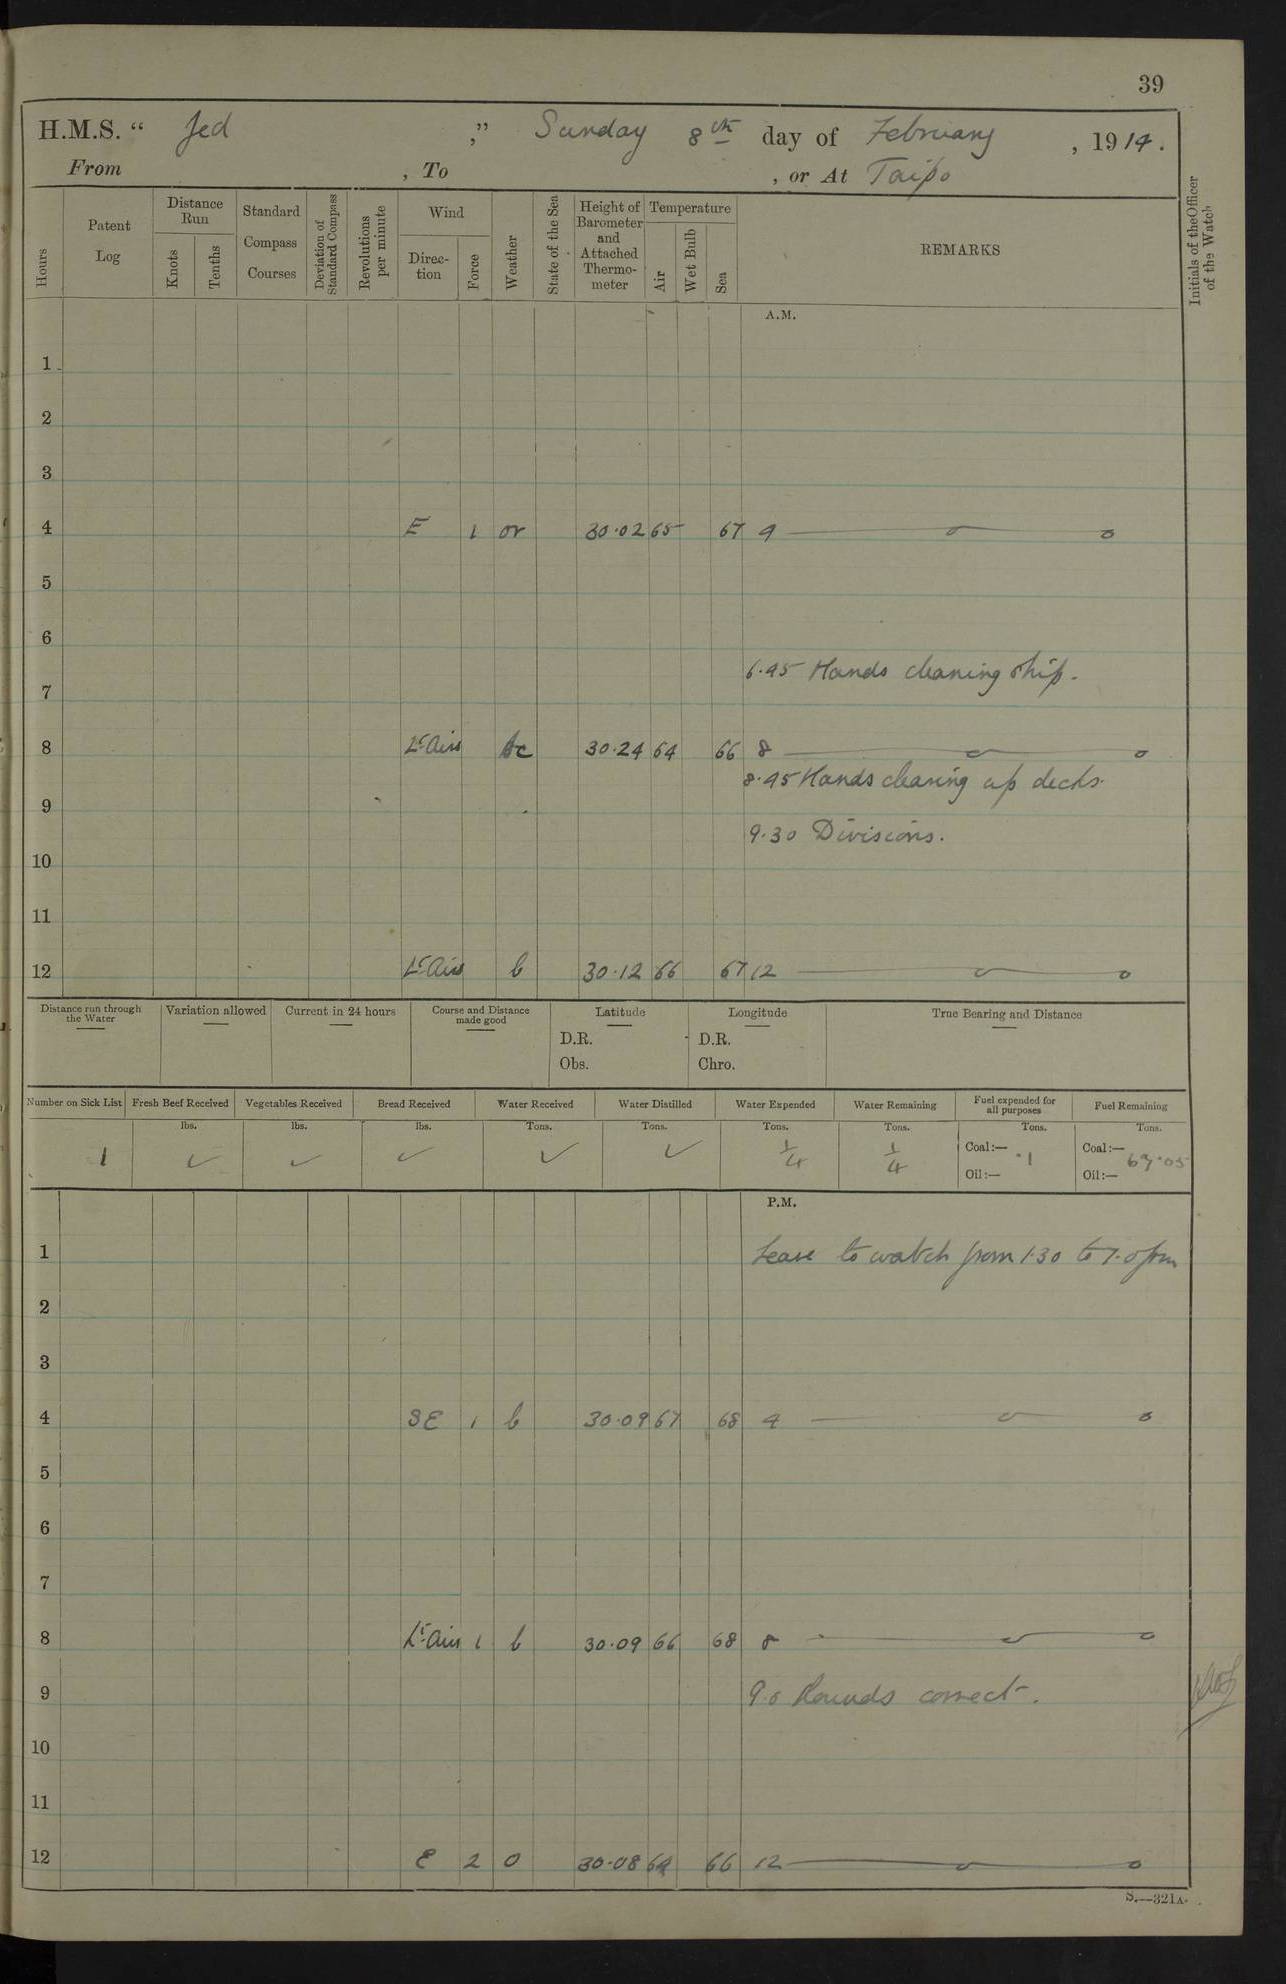 39
H.M.S. “ Jed ,” Sunday 8th day of February , 1914.
From , To , or At Taipo
Hours
Patent Log
Distance Run
Knots
Tenths
Standard Compass Courses
Deviation of Standard Compass
Revolutions per minute
Wind
Direc-tion
Force
Weather
State of the Sea
Height of Barometer and Attached Thermo-meter
Temperature
Air
Wet Bulb
Sea
REMARKS
Initials of the Officer of the Watch
A.M.
1
2
3
4 E 1 or 30·02 65 67 4
5
6
6·45 Hands cleaning ship.
7
8 Lt Airs bc 30·24 64 66 8
8·45 Hands clearing up decks.
9
9·30 Divisions.
10
11
12 Lt Airs b 30·12 66 67 12
Distance run through the Water
Variation allowed
Current in 24 hours
Course and Distance made good
Latitude
D.R.
Obs.
Longitude
D.R.
Chro.
True Bearing and Distance
Number on Sick List
Fresh Beef Received
Vegetables Received
Bread Received
Water Received
Water Distilled
Water Expended
Water Remaining
Fuel expended for all purposes
Fuel Remaining
lbs. lbs. lbs. Tons. Tons. Tons. Tons. Tons. Tons.
1 ✓ ✓ ✓ ✓ ✓ 1/4 1/4 Coal:— ·1 Coal:— 69·05
Oil:— Oil:—
P.M.
1 Leave to watch from 1·30 to 7·0 pm
2
3
4 SE 1 b 30·09 67 68 4
5
6
7
8 Lt Airs 1 b 30·09 66 68 8
9 9·0 Rounds correct.
10
11
12 E 2 o 30·08 64 66 12
S.—321A.